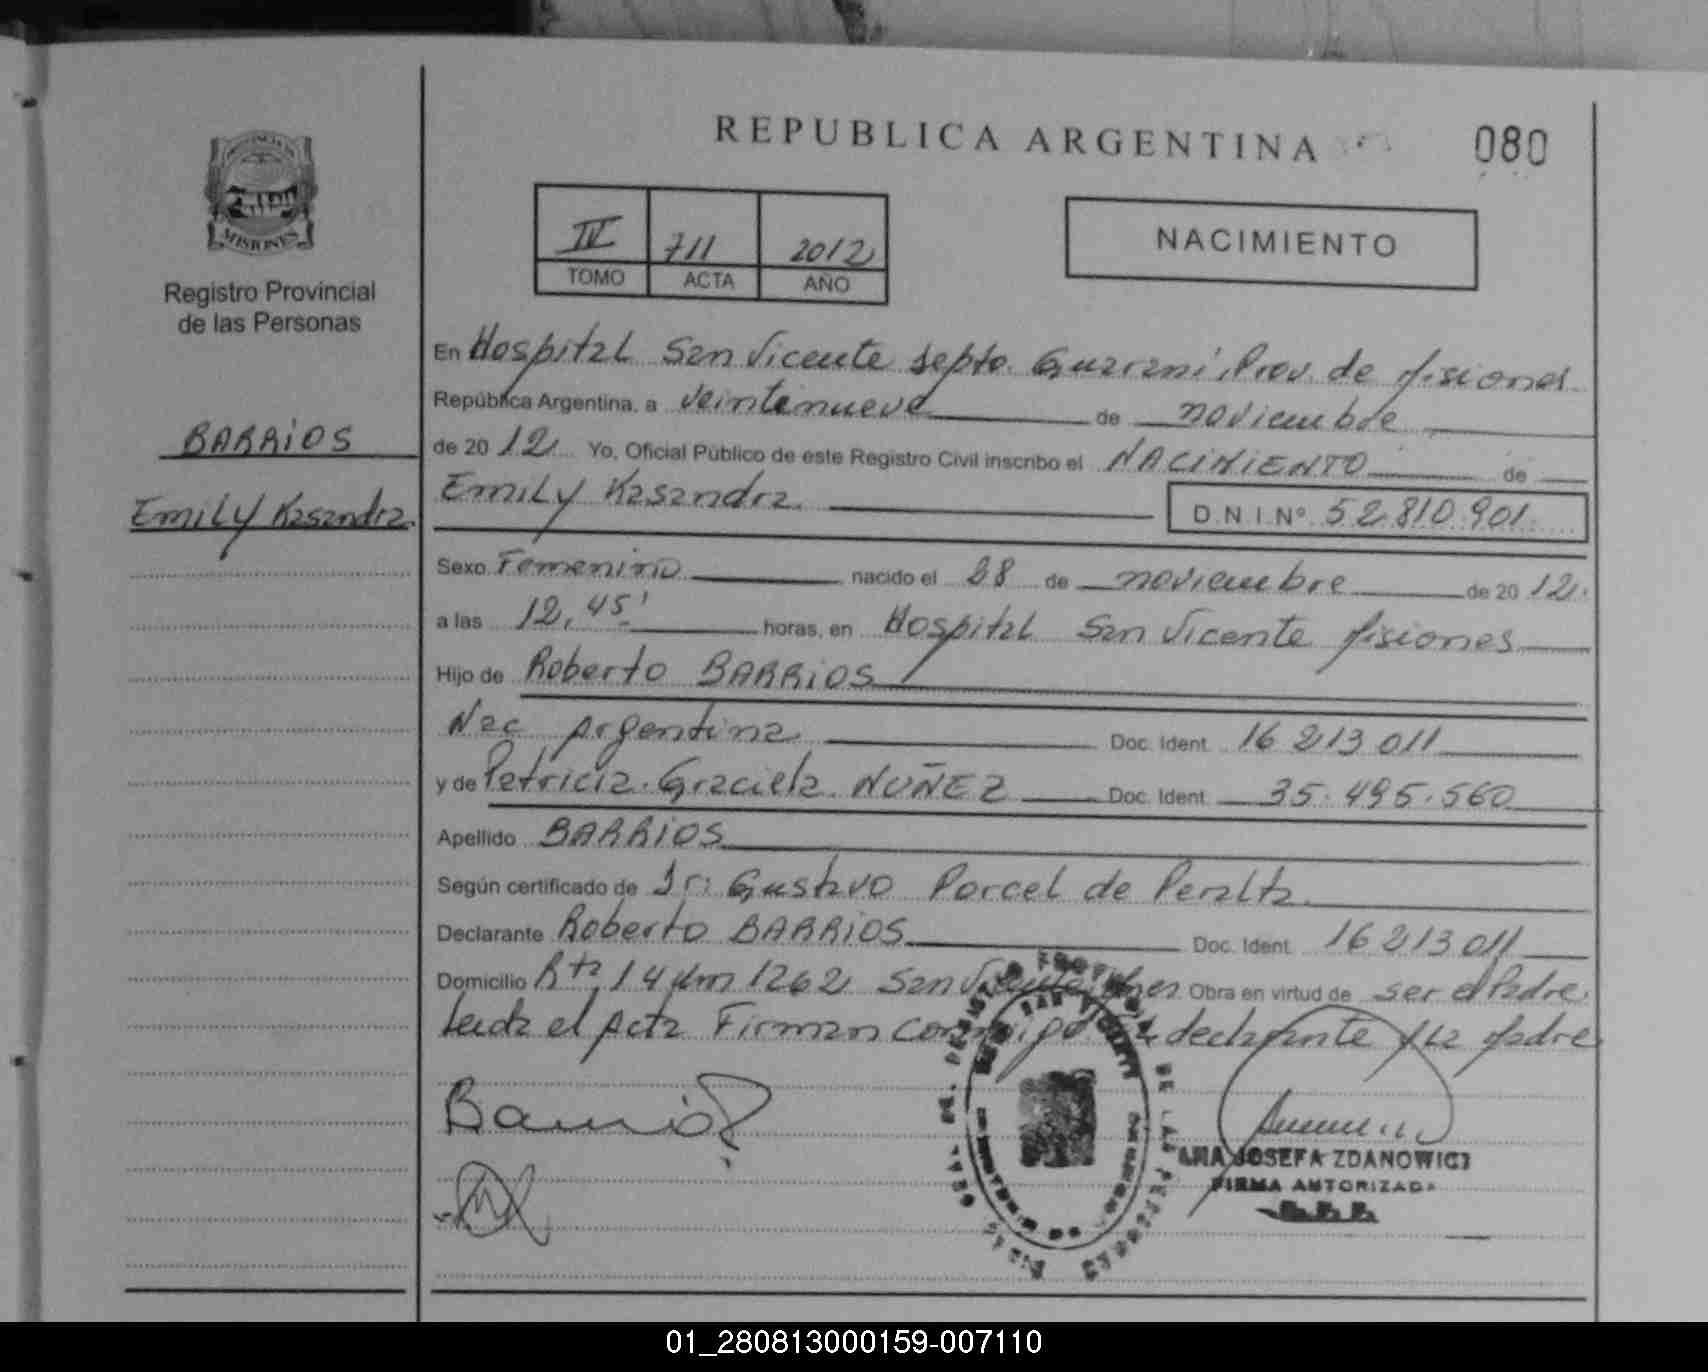 REPUBLICA ARGENTINA
080
MISIONES
Registro Provincial
de las Personas
IV 711 2012
TOMO ACTA AÑO
NACIMIENTO
BARRIOS
Emily Kasandra.
En Hospital San Vicente Depto. Guaraní, Prov. de Misiones
República Argentina, a veintenueve de noviembre
de 2012 Yo, Oficial Público de este Registro Civil inscribo el NACIMIENTO de
Emily Kasandra. D.N.I.Nº 52.810.901.
Sexo Femenino nacido el 28 de noviembre de 2012.
a las 12,45' horas, en Hospital San Vicente Misiones
Hijo de Roberto BARRIOS
Nac Argentina Doc. Ident. 16 213 011
y de Patricia Graciela NUÑEZ Doc. Ident. 35.495.560
Apellido BARRIOS
Según certificado de Dr: Gustavo Porcel de Peralta.
Declarante Roberto BARRIOS Doc. Ident. 16 213 011
Domicilio Rta 14 Km 1262 San Vicente Obra en virtud de ser el Padre
Leida el Acta Firman conmigo declarante y la Madre
Barrios
ANA JOSEFA ZDANOWICZ
FIRMA AUTORIZADA
01_280813000159-007110